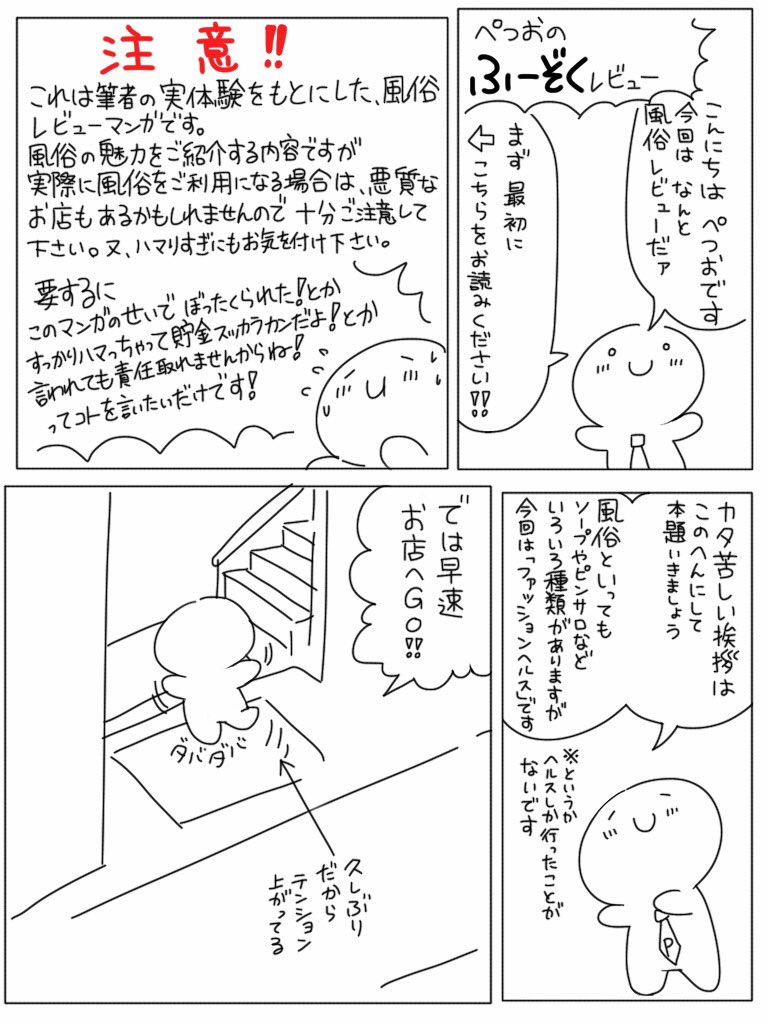 ぺつおの
ふーぞくレビュー
こんにちは ぺつおです
今回は なんと
風俗レビューだァ
まず 最初に
⇦こちらをお読みください!!
注意!!
これは筆者の実体験をもとにした、風俗
レビューマンガです。
風俗の魅力をご紹介する内容ですが
実際に風俗をご利用になる場合は、悪質な
お店もあるかもしれませんので十分ご注意して
下さい。又、ハマりすぎにもお気を付け下さい。
要するに
このマンガのせいで ぼったくられた!とか
すっかりハマっちゃって貯金スッカラカンだよ!とか
言われても責任取れませんからね!
ってコトを言いたいだけです!
カタ苦しい挨拶は
このへんにして
本題いきましょう
風俗といっても
ソープやピンサロなど
いろいろ種類がありますが
今回は「ファッションヘルス」です
※というか
ヘルスしか行ったことが
ないです
P
では早速
お店へGO!!
ダバダバ
久しぶり
だから
テンション
上がってる